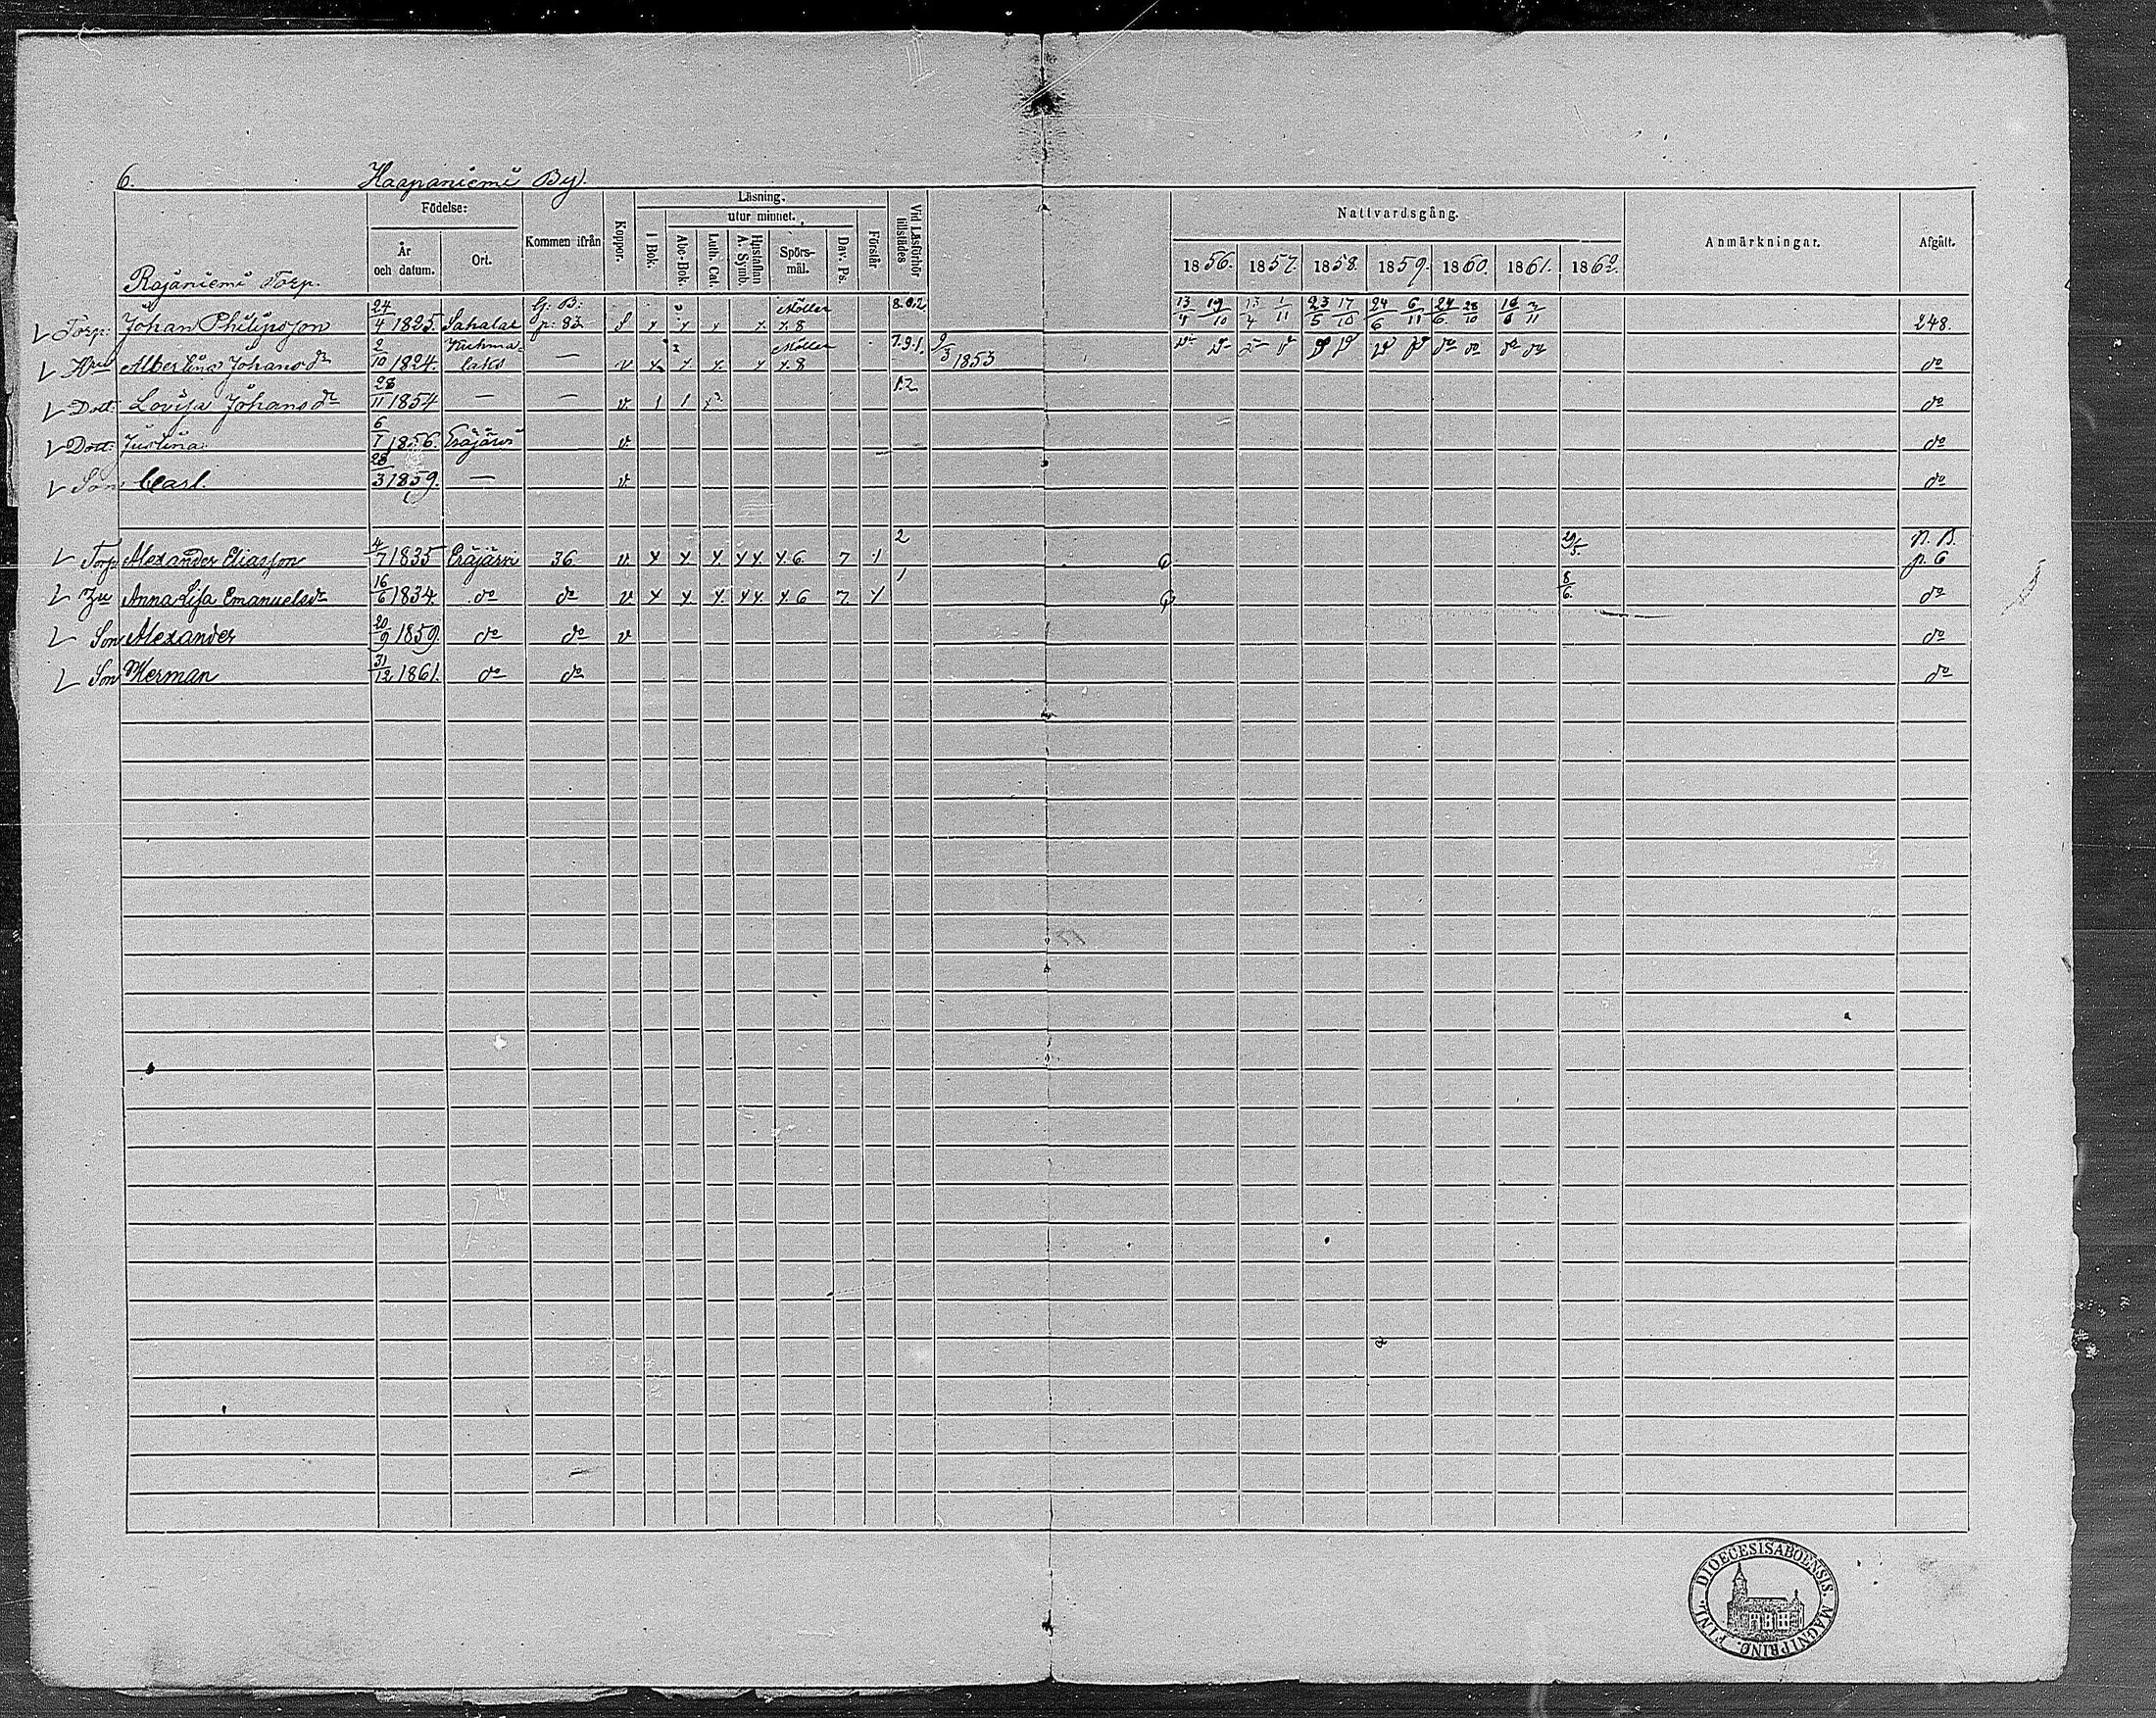 6. Haapaniemi By.
Födelse: Läsning. Nattvardsgång.
utur minnet.
År och datum. Ort. Kommen ifrån Koppor. I Bok. Abc-Bok. Luth. Cat. Hustaflan A. Symb. Spörsmål. Dav. Ps. Förstår Vid Läsförhör tillstädes 1856. 1857. 1858. 1859. 1860. 1861. 1862. Anmärkningar. Afgått.
Rajaniemi Torp.
Torp: Johan Philipsson 24/4 1825. Sahalax G: B: p: 83 S x x x x Möller x.8 8.0.2 13/4 19/10 13/4 1/11 23/5 17/10 24/6 6/11 24/6. 28/10 16/6 3/11 248.
Hu Albertina Johansdr 2/10 1824. Kuhmalaks — v x x x. x Möller x.8 7.9.1. 9/3 1853 do do do do do
Dott: Lovisa Johansdr 28/11 1854 — — v. 1 1 12 do
Dott: Justina 6/7 1856. Eräjärvi v. do
Son Carl. 28/3 1859. — v. do
Torp Alexander Eliasson 4/7 1835 Eräjärvi 36. v. x x. x. x x. x.6. 7 1 2 29/5. N. B. p. 6
Hu Anna Lisa Emanuelsdr 16/6 1834. do do v x x. x. x x. x.6 7. x 1 8/6. do
Son Alexander 20/9 1859. do do v do
Son Herman 31/12 1861. do do do
DIOECESIS ABOENSIS. MAGNI PRINC. FINL.